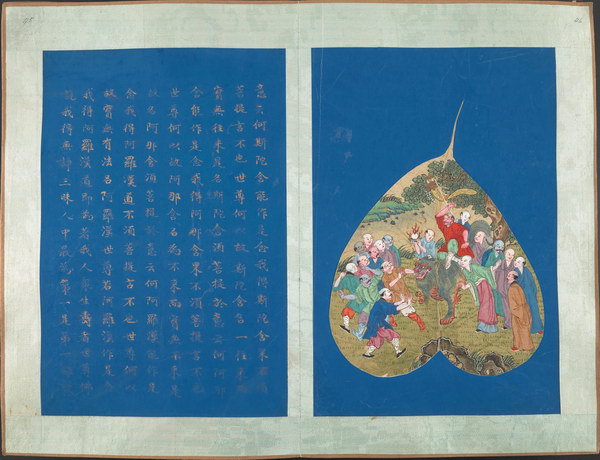 意云何斯陀含能作是念我得斯陀含果不須
菩提言不也世尊何以故斯陀含名一往來而
實無往來是名斯陀含須菩提於意云何阿那
含能作是念我得阿那含果不須菩提言不也
世尊何以故阿那含名為不來而實無不來是
故名阿那含須菩提於意云何阿羅漢能作是
念我得阿羅漢道不須菩提言不也世尊何以
故實無有法名阿羅漢世尊若阿羅漢作是念
我得阿羅漢道即為著我人眾生壽者世尊佛
說我得無諍三昧人中最為第一是第一離欲